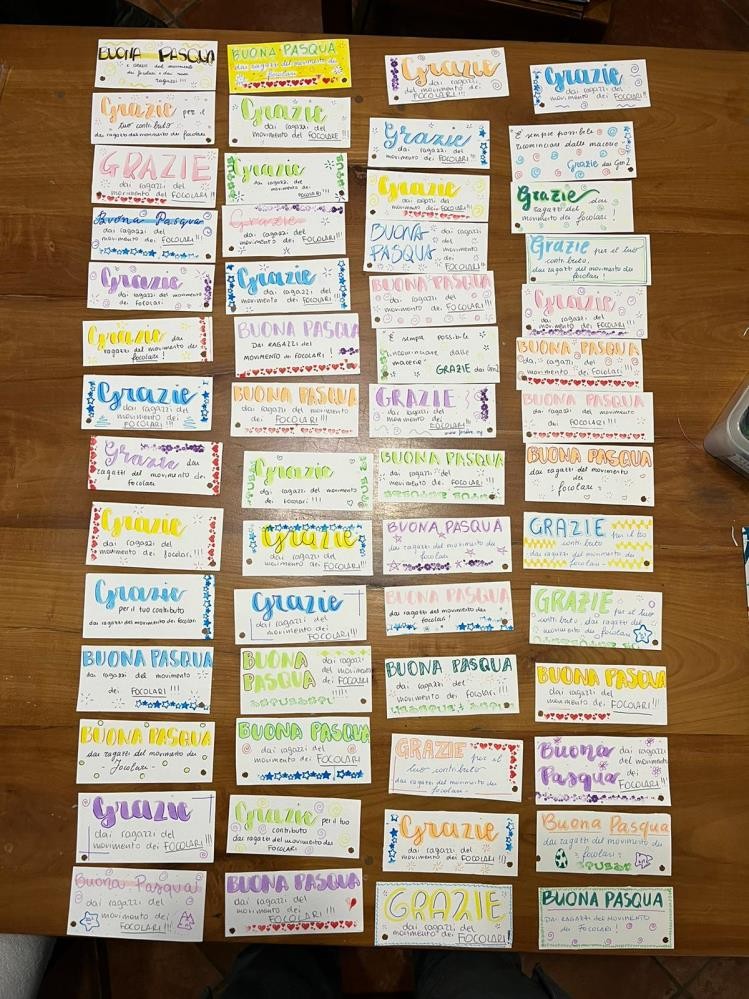 BUONA PASQUA
ragazzi !!!
Grazie per il
tuo contributo
dai ragazzi del movimento dei focolari
GRAZIE
dai ragazzi del
movimento dei FOCOLARI !!!
Buona Pasqua
dai ragazzi del
movimento dei FOCOLARI!!!
Grazie
dai ragazzi del movimento
dei FOCOLARI.
Grazie dai
ragazzi del movimento dei
focolari!
Grazie
dai ragazzi del
movimento dei
FOCOLARI !!!
Grazie dai
ragazzi del movimento dei
focolari
Grazie
dai ragazzi del
movimento dei focolari !!!
Grazie
per il tuo contributo
dai ragazzi del movimento dei focolari
BUONA PASQUA
dai ragazzi del movimento
dei FOCOLARI !!!
BUONA PASQUA
dai ragazzi del movimento dei
- Focolari -
Grazie
dai ragazzi del
movimento dei FOCOLARI !!!
Buona Pasqua
dai ragazzi del
movimento dei
FOCOLARI!!!
BUONA PASQUA
dai ragazzi del movimento dei
focolari
Grazie
dai ragazzi del
movimento dei FOCOLARI !!!
grazie
dai ragazzi del
movimento dei
FOCOLARI !!!
Grazie
dai ragazzi del
movimento dei FOCOLARI!!!
Grazie
dai ragazzi del
movimento dei FOCOLARI !!!
BUONA PASQUA
DAI RAGAZZI DEL
MOVIMENTO DEI FOCOLARI !
BUONA PASQUA
dai ragazzi del movimento
dei FOCOLARI !!!
Grazie
dai ragazzi del movimento
dei FOCOLARI !!!
Grazie
dai ragazzi del
movimento dei FOCOLARI!!!
Grazie
dai ragazzi del
movimento dei
FOCOLARI !!!
BUONA
PASQUA
dai ragazzi
del movimento
dei FOCOLARI
!!!!
BUONA PASQUA
dai ragazzi del
movimento dei
FOCOLARI !!!
Grazie per il tuo
contributo
dai ragazzi del movimento dei
FOCOLARI
BUONA PASQUA
dai ragazzi del
movimento dei
FOCOLARI !!!
Grazie
dai ragazzi
del movimento dei
FOCOLARI !!!
Grazie
dai ragazzi del
movimento dei FOCOLARI !!!
Grazie
dai ragazzi del
movimento dei FOCOLARI !!!
BUONA
PASQUA
dai ragazzi
del movimento
dei
FOCOLARI
BUONA PASQUA
dai ragazzi del
movimento dei FOCOLARI !!!
È sempre possibile
ricominciare dalle
macerie
GRAZIE dai Gen2
GRAZIE
dai ragazzi del
movimento dei
FOCOLARI !!!
BUONA PASQUA
dai ragazzi del
movimento dei FOCOLARI !!!
BUONA PASQUA
dai ragazzi del movimento dei
- focolari -
BUONA PASQUA
dai ragazzi del movimento dei
focolari !
BUONA PASQUA
dai ragazzi del
movimento dei FOCOLARI !!!
GRAZIE per il
tuo contributo
dai ragazzi del movimento dei
- focolari -
Grazie
dai ragazzi del
movimento dei FOCOLARI !!!
GRAZIE
dai ragazzi del
movimento dei FOCOLARI!
Grazie
dai ragazzi del
movimento dei FOCOLARI !!!
È sempre possibile
ricominciare dalle macerie
Grazie dai Gen2
Grazie dai
ragazzi del
movimento dei
focolari!
Grazie per il tuo
contributo,
dai ragazzi del movimento dei
focolari!
Grazie
dai ragazzi del
movimento dei FOCOLARI!!!
BUONA PASQUA
dai ragazzi del
movimento dei Focolari !!!
BUONA PASQUA
dai ragazzi del movimento
dei FOCOLARI !!!
BUONA PASQUA
dai ragazzi del movimento
dei
focolari
GRAZIE per il tuo
contributo
dai ragazzi del movimento dei
focolari -
GRAZIE per il tuo
contributo dai ragazzi del
movimento dei
focolari
BUONA PASQUA
dai ragazzi del
movimento dei FOCOLARI !!!
Buona
Pasqua
dai ragazzi
del movimento
dei
FOCOLARI!!!
Buona Pasqua
dai ragazzi del movimento dei
focolari
BUONA PASQUA
DAI RAGAZZI DEL MOVIMENTO
DEI FOCOLARI !